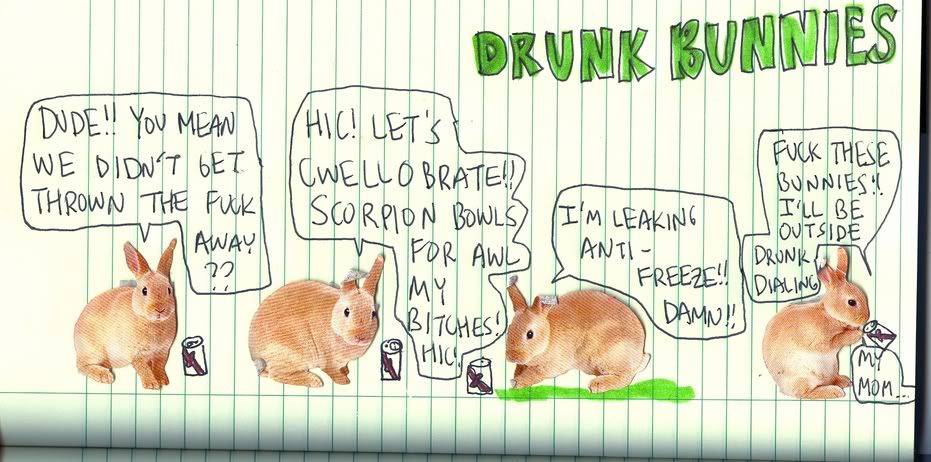 DRUNK BUNNIES
DUDE!! YOU MEAN
WE DIDN'T GET
THROWN THE FUCK
AWAY
??
HIC! LET'S
CWELLOBRATE!!
SCORPION BOWLS
FOR AWL
MY
BITCHES!
HIC!
I'M LEAKING
ANTI-
FREEZE!!
DAMN!!
FUCK THESE
BUNNIES!!
I'LL BE
OUTSIDE
DRUNK
DIALING
MY
MOM...